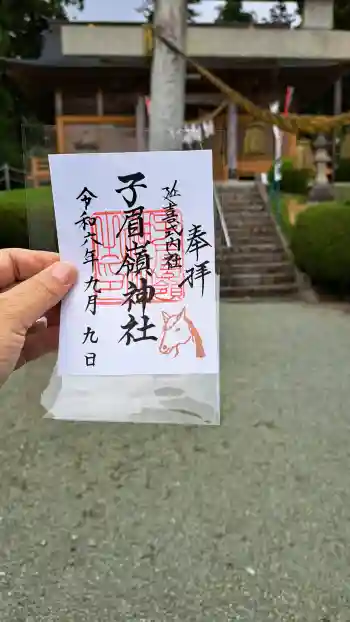 奉拝
延喜式内社
子眉嶺神社
令和六年九月九日